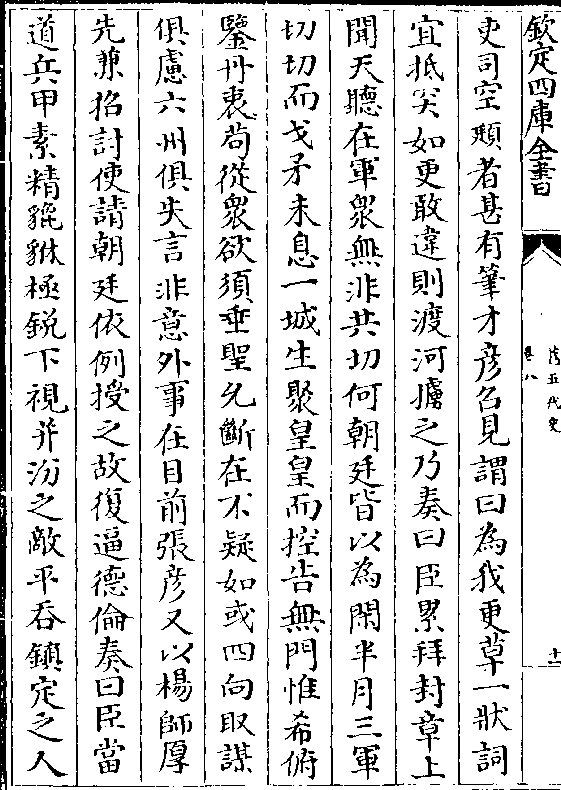 欽定四庫全書
舊五代史
卷八
十一
吏司空頲者甚有筆才彦召見謂曰為我更草一狀詞
宜抵突如更敢違則渡河擄之乃奏曰臣累拜封章上
聞天聽在軍衆無非共切何朝廷皆以為閑半月三軍
切切而戈矛未息一城生聚皇皇而控告無門惟希俯
鑒丹衷苟從衆欲須垂聖允斷在不疑如或四向取謀
俱慮六州俱失言非意外事在目前張彦又以楊師厚
先兼招討使請朝廷依例授之故復逼德倫奏曰臣當
道兵甲素精貔貅極鋭下視并汾之敵平吞鎮定之人